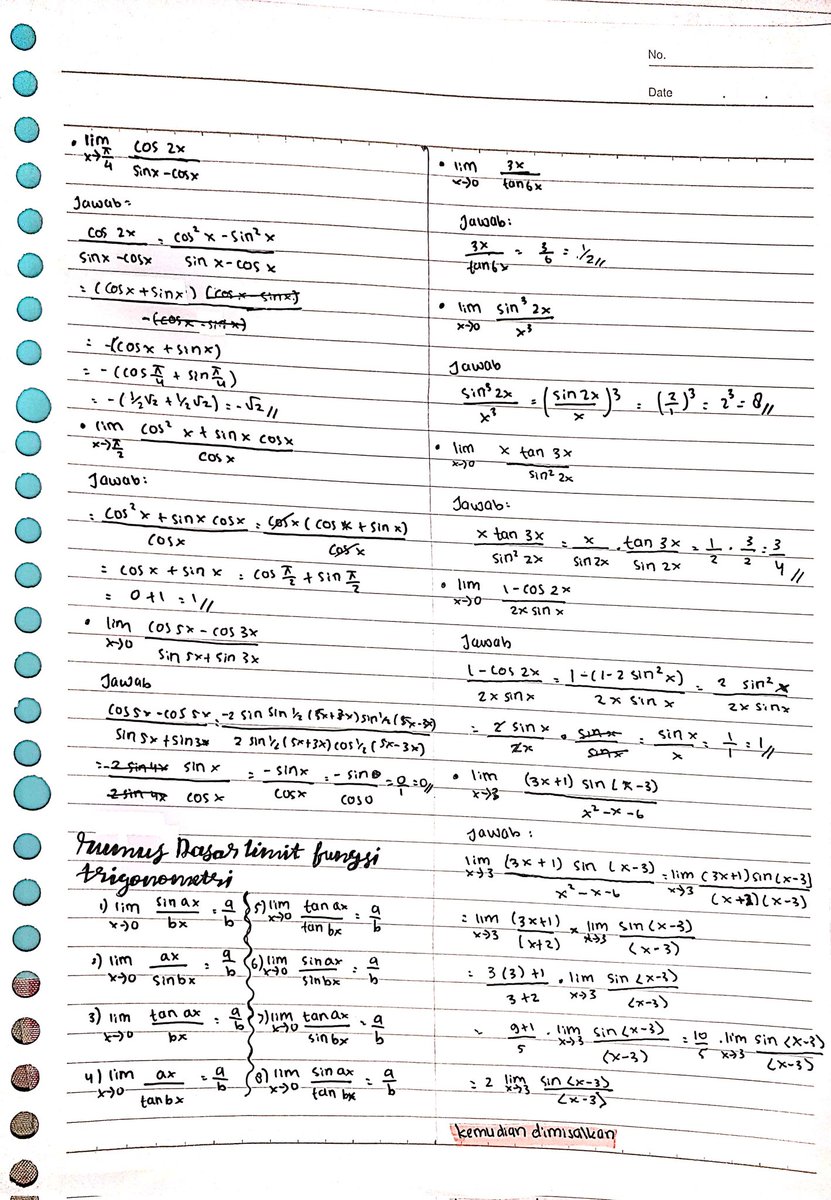 No.
Date . .
• lim x→π/4 cos 2x / sinx - cosx
Jawab=
cos 2x / sinx - cosx = cos² x - sin² x / sin x - cos x
= (cosx + sinx) (cosx - sinx) / -(cosx - sin x)
= -(cosx + sinx)
= - (cos π/4 + sin π/4)
= - (½√2 + ½√2) = -√2 //
• lim x→π/2 cos² x + sinx cosx / cosx
Jawab:
= cos² x + sinx cosx / cosx = cosx (cos x + sinx) / cosx
= cosx + sin x = cos π/2 + sin π/2
= 0 + 1 = 1 //
• lim x→0 cos 5x - cos 3x / sin 5x + sin 3x
Jawab
cos 5x - cos 5x / sin 5x + sin 3x = -2 sin sin ½ (5x+3x) sin ½ (5x-3x) / 2 sin ½ (5x+3x) cos ½ (5x-3x)
= -2 sin 4x sin x / 2 sin 4x cos x = -sinx / cosx = -sin 0 / cos 0 = 0/1 = 0 //
Rumus Dasar limit fungsi
trigonometri
1) lim x→0 sin ax / bx = a/b
2) lim x→0 ax / sin bx = a/b
3) lim x→0 tan ax / bx = a/b
4) lim x→0 ax / tan bx = a/b
5) lim x→0 tan ax / tan bx = a/b
6) lim x→0 sin ax / sin bx = a/b
7) lim x→0 tan ax / sin bx = a/b
8) lim x→0 sin ax / tan bx = a/b
• lim x→0 3x / tan 6x
Jawab:
3x / tan 6x = 3/6 = 1/2 //
• lim x→0 sin³ 2x / x³
Jawab
sin³ 2x / x³ = (sin 2x / x)³ = (2/1)³ = 2³ = 8 //
• lim x→0 x tan 3x / sin² 2x
Jawab:
x tan 3x / sin² 2x = x / sin 2x . tan 3x / sin 2x = 1/2 . 3/2 = 3/4 //
• lim x→0 1 - cos 2x / 2x sin x
Jawab
1 - cos 2x / 2x sinx = 1 - (1 - 2 sin² x) / 2x sin x = 2 sin² x / 2x sinx
= 2 sin x / 2x • sin x / sin x = sin x / x = 1/1 = 1 //
• lim x→3 (3x+1) sin (x-3) / x² - x - 6
Jawab :
lim x→3 (3x+1) sin (x-3) / x² - x - 6 = lim x→3 (3x+1) sin (x-3) / (x+2) (x-3)
= lim x→3 (3x+1) / (x+2) × lim x→3 sin (x-3) / (x-3)
= 3(3) + 1 / 3+2 . lim x→3 sin (x-3) / (x-3)
= 9+1 / 5 . lim x→3 sin (x-3) / (x-3) = 10/5 . lim x→3 sin (x-3) / (x-3)
= 2 lim x→3 sin (x-3) / (x-3)
kemudian dimisalkan